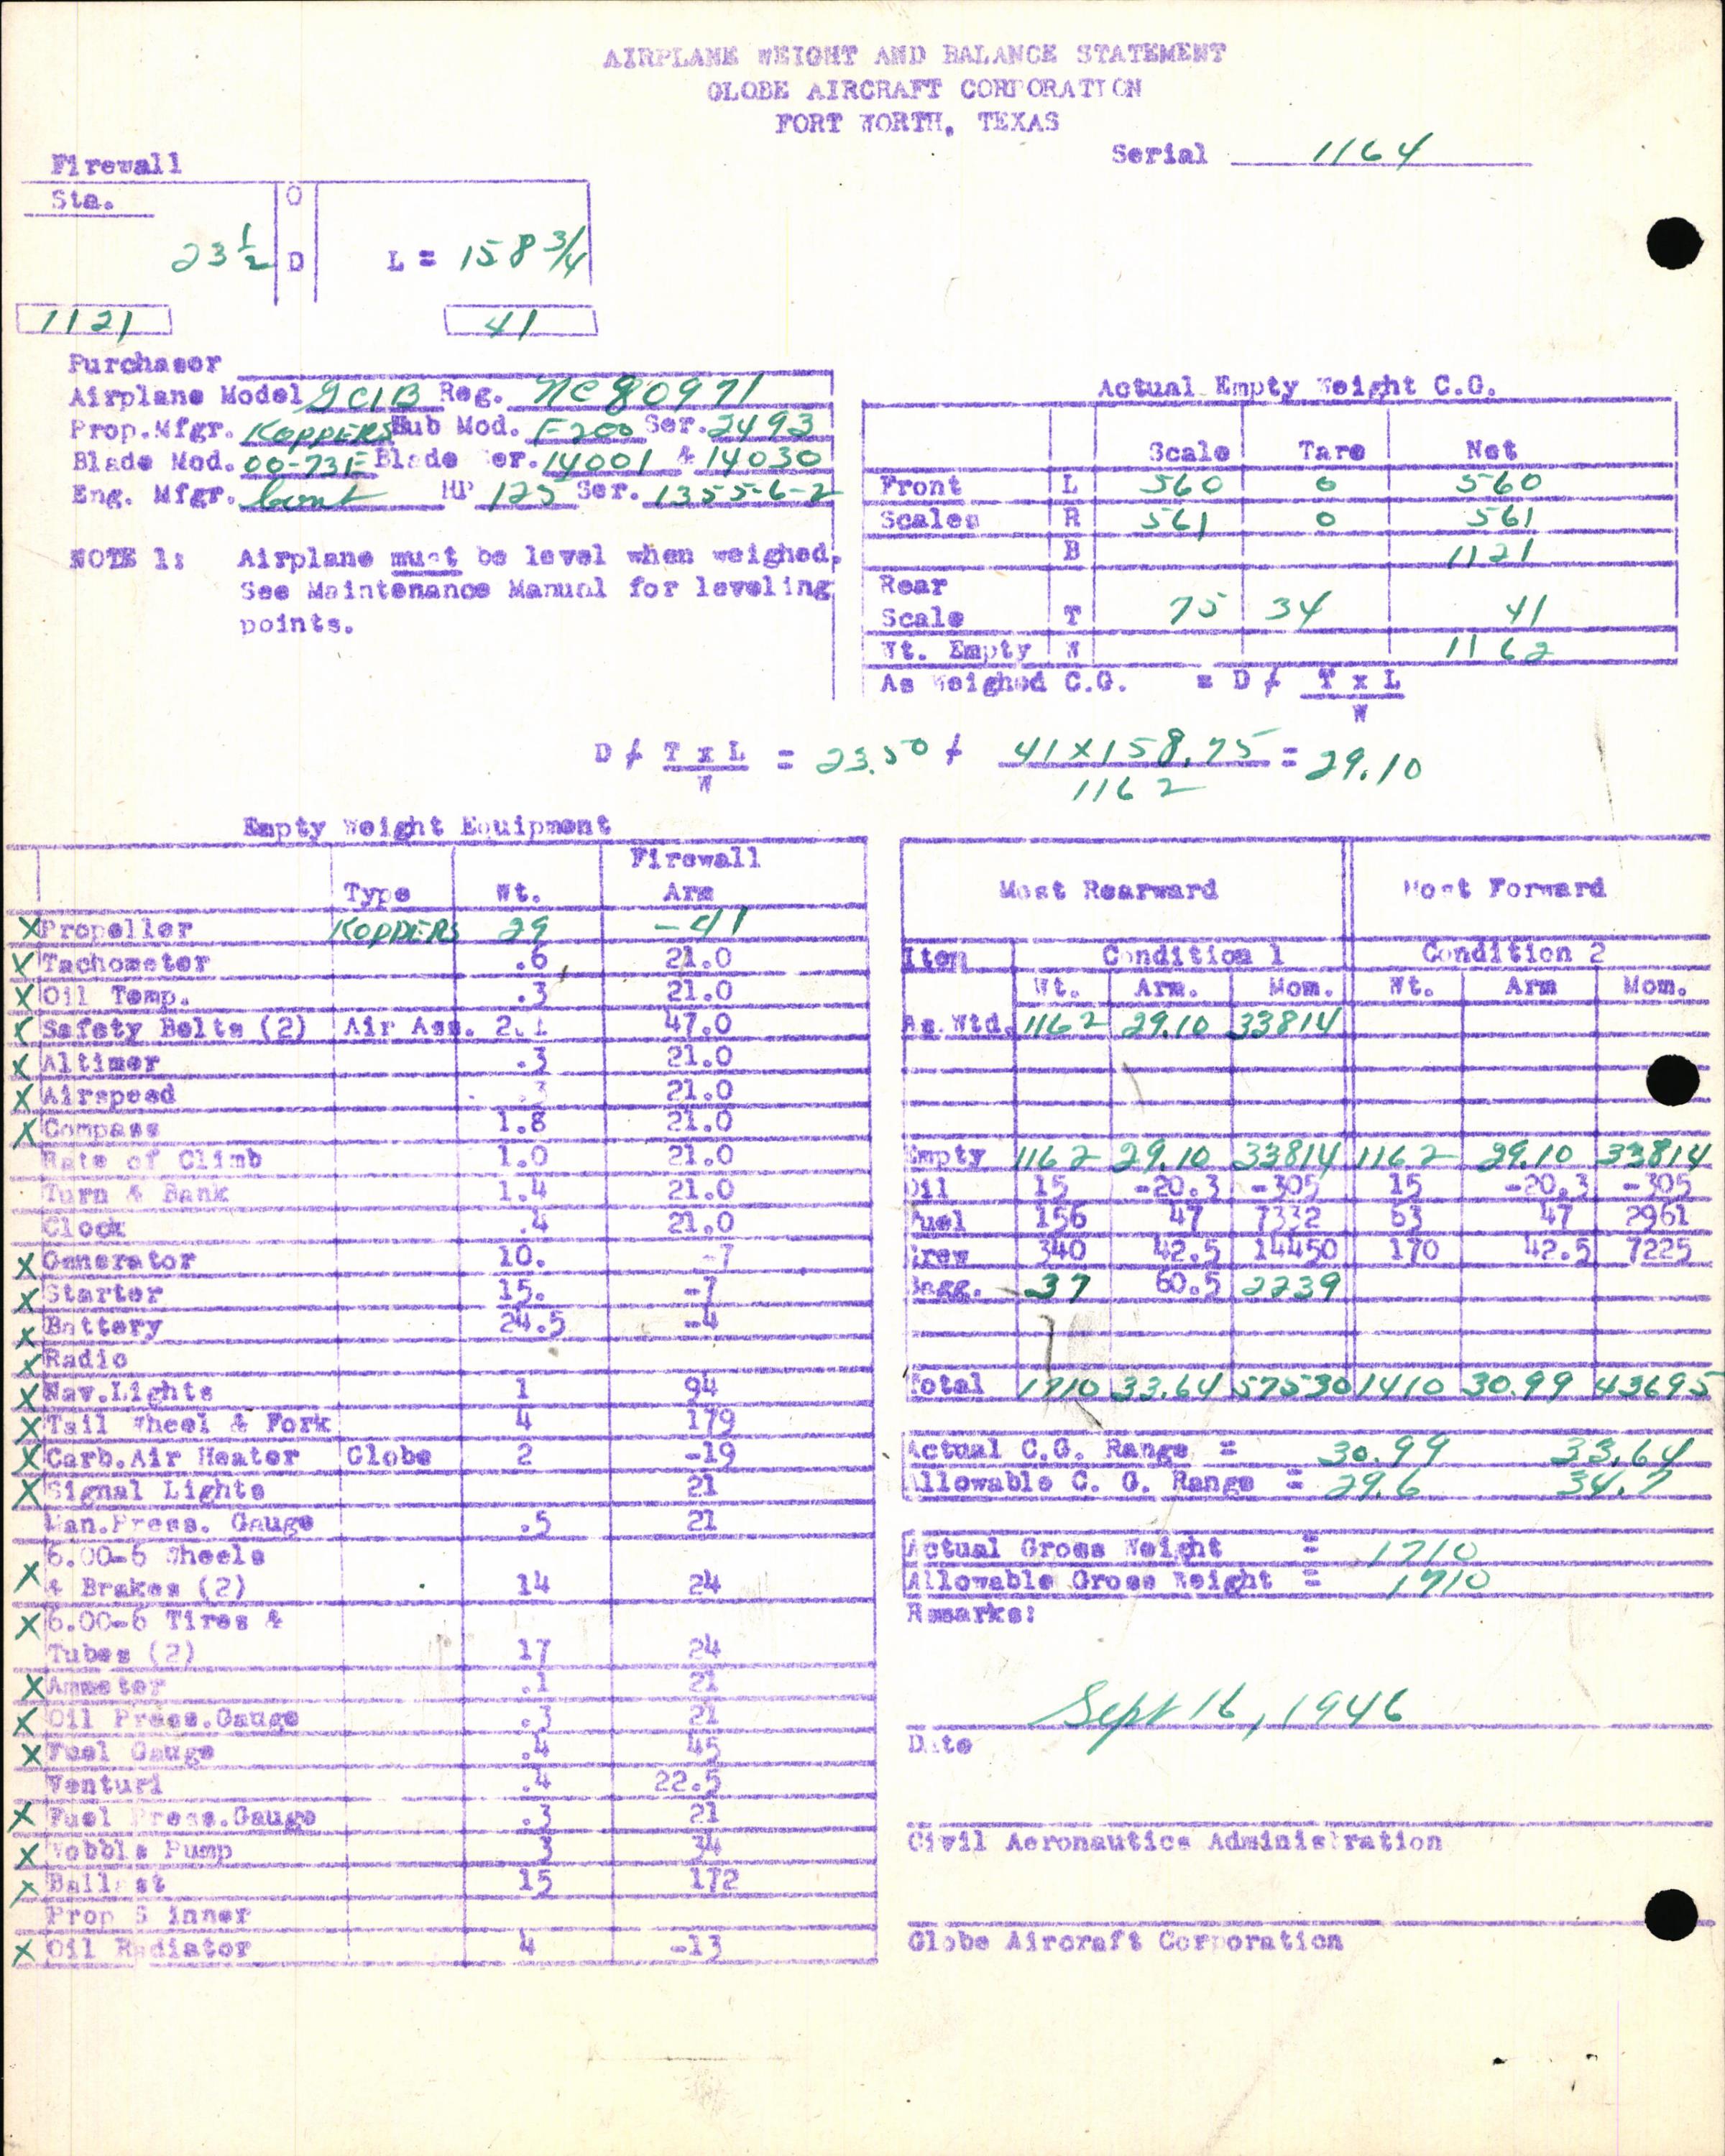 AIRPLANE WEIGHT AND BALANCE STATEMENT
GLOBE AIRCRAFT CORPORATION
FORT WORTH, TEXAS
Serial 1164
Firewall
Sta. O
23 1/2 D L = 158 3/4
1121 41
Purchaser
Airplane Model GC1B Reg. NC80971
Prop.Mfgr. KOPPERS Hub Mod. F200 Ser. 2493
Blade Mod. 00-73E Blade Ser. 14001 & 14030
Eng. Mfgr. Cont HP 125 Ser. 1355-6-2
NOTE 1: Airplane must be level when weighed.
See Maintenance Manual for leveling
points.
Actual Empty Weight C.G.
Scale Tare Net
Front L 560 0 560
Scales R 561 0 561
B 1121
Rear
Scale T 75 34 41
Wt. Empty W 1162
As Weighed C.G. = D + T x L
W
D + T x L = 23.50 + 41 X 158.75 = 29.10
W 1162
Empty Weight Equipment
Firewall
Type Wt. Arm
X Propeller KOPPERS 29 -41
X Tachometer .6 21.0
X Oil Temp. .3 21.0
X Safety Belts (2) Air Ass. 2.1 47.0
X Altimer .3 21.0
X Airspeed .3 21.0
X Compass 1.8 21.0
Rate of Climb 1.0 21.0
Turn & Bank 1.4 21.0
Clock .4 21.0
X Generator 10. -7
X Starter 15. -7
X Battery 24.5 -4
X Radio
X Nav.Lights 1 94
X Tail Wheel & Fork 4 179
X Carb.Air Heater Globe 2 -19
X Signal Lights 21
Man.Press. Gauge .5 21
6.00-6 Wheels
X & Brakes (2) 14 24
X 6.00-6 Tires &
Tubes (2) 17 24
X Ammeter .1 21
X Oil Press.Gauge .3 21
X Fuel Gauge .4 45
Venturi .4 22.5
X Fuel Press.Gauge .3 21
X Wobble Pump 3 34
X Ballast 15 172
Prop Spinner
X Oil Radiator 4 -13
Most Rearward Most Forward
Item Condition 1 Condition 2
Wt. Arm. Mom. Wt. Arm Mom.
As Wtd. 1162 29.10 33814
Empty 1162 29.10 33814 1162 29.10 33814
Oil 15 -20.3 -305 15 -20.3 -305
Fuel 156 47 7332 63 47 2961
Crew 340 42.5 14450 170 42.5 7225
Bagg. 37 60.5 2239
Total 1710 33.64 57530 1410 30.99 43695
Actual C.G. Range = 30.99 33.64
Allowable C. G. Range = 29.6 34.7
Actual Gross Weight = 1710
Allowable Gross Weight = 1710
Remarks:
Sept 16, 1946
Date
Civil Aeronautics Administration
Globe Aircraft Corporation